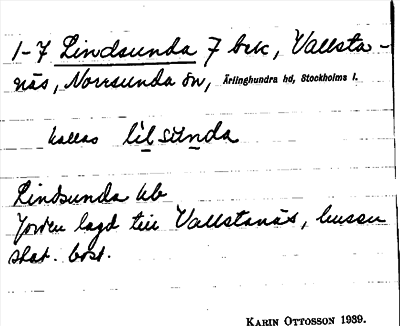 1-7 Lindsunda 7 bek, Vallsta-
näs, Norrsunda sn, Ärlinghundra hd, Stockholms l.
kallas lilsunda
Lindsunda ub
Jorden lagd till Vallstanäs, husen
stat. bost.
KARIN OTTOSSON 1939.